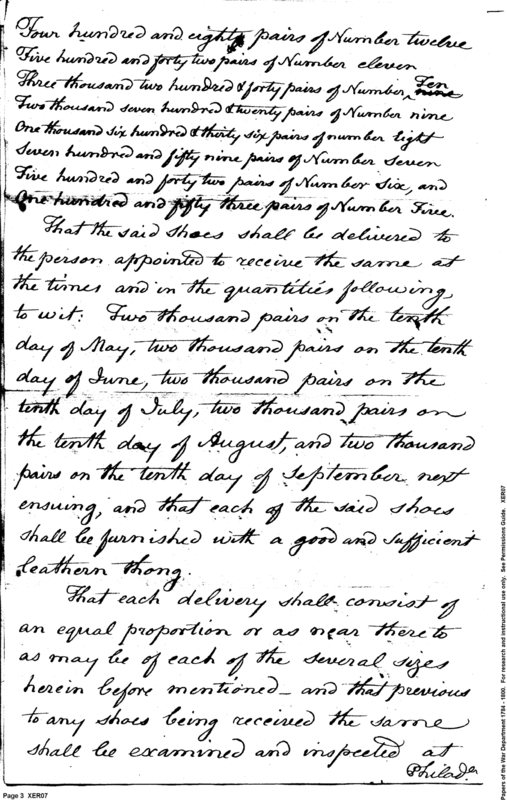 Four hundred and eighty pairs of Number twelve
Five hundred and forty two pairs of Number eleven
Three thousand two hundred & forty pairs of Number Ten nine
Two thousand seven hundred & twenty pairs of Number nine
One thousand six hundred & thirty six pairs of number Eight
Seven hundred and fifty nine pairs of Number Seven
Five hundred and forty two pairs of Number Six, and
One hundred and fifty three pairs of Number Five.
That the said shoes shall be delivered to
the person appointed to receive the same at
the times and in the quantities following,
to wit: Two thousand pairs on the tenth
day of May, two thousand pairs on the tenth
day of June, two thousand pairs on the
tenth day of July, two thousand pairs on
the tenth day of August, and two thousand
pairs on the tenth day of September next
ensuing, and that each of the said shoes
shall be furnished with a good and sufficient
leathern thong.
That each delivery shall consist of
an equal proportion or as near thereto
as may be of each of the several sizes
herein before mentioned _ and that previous
to any shoes being received the same
shall be examined and inspected at
Philada.
Page 3 XER07
Papers of the War Department 1784 - 1800. For research and instructional use only. See Permissions Guide. XER07